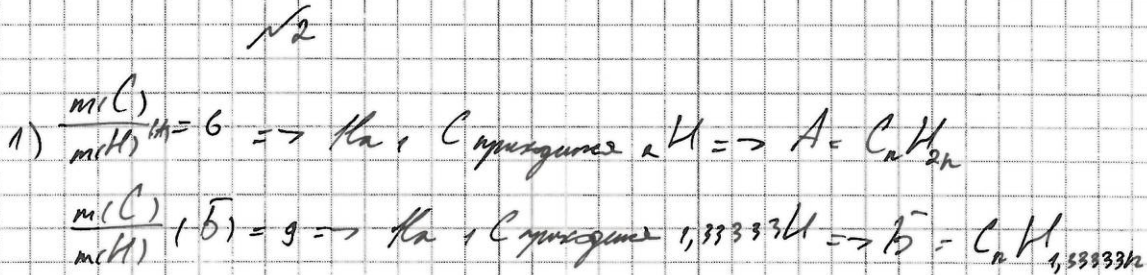 №2
1) m(C)/m(H) (A) = 6 => На 1 C приходится 2 H => A = CnH2n
m(C)/m(H) (Б) = 9 => На 1 C приходится 1,33333H => Б = CnH1,33333n